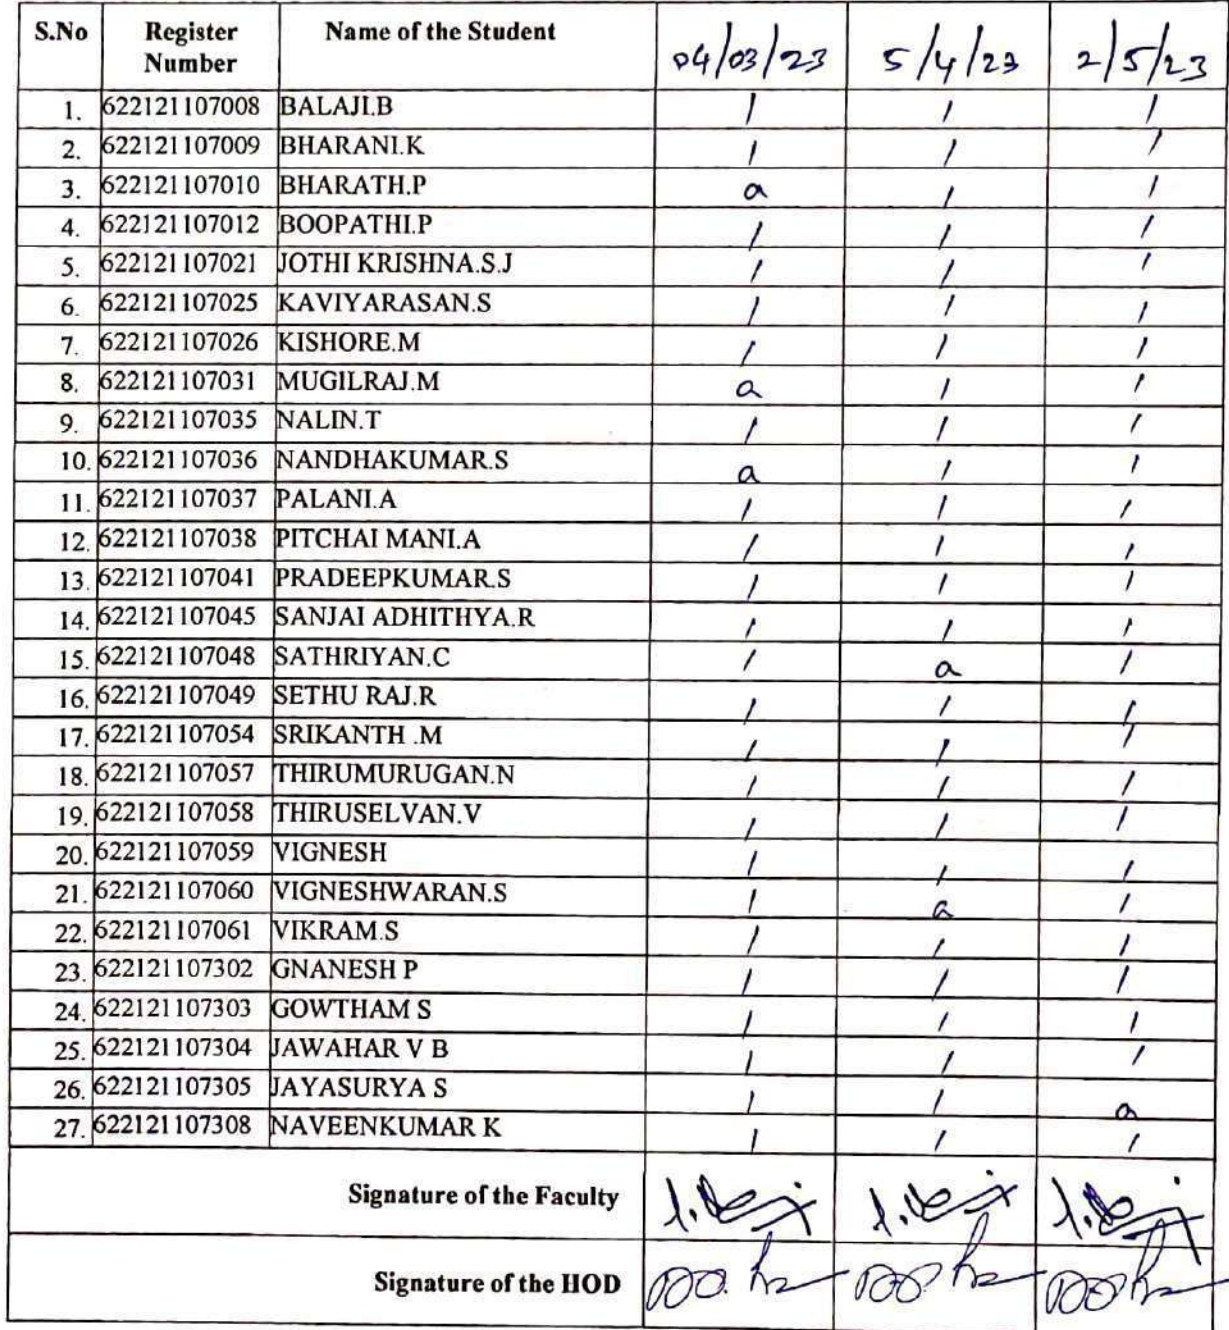 S.No Register Number Name of the Student 04/03/23 5/4/23 2/5/23
1. 622121107008 BALAJI.B / / /
2. 622121107009 BHARANI.K / / /
3. 622121107010 BHARATH.P a / /
4. 622121107012 BOOPATHI.P / / /
5. 622121107021 JOTHI KRISHNA.S.J / / /
6. 622121107025 KAVIYARASAN.S / / /
7. 622121107026 KISHORE.M / / /
8. 622121107031 MUGILRAJ.M a / /
9. 622121107035 NALIN.T / / /
10. 622121107036 NANDHAKUMAR.S a / /
11. 622121107037 PALANI.A / / /
12. 622121107038 PITCHAI MANI.A / / /
13. 622121107041 PRADEEPKUMAR.S / / /
14. 622121107045 SANJAI ADHITHYA.R / / /
15. 622121107048 SATHRIYAN.C / a /
16. 622121107049 SETHU RAJ.R / / /
17. 622121107054 SRIKANTH .M / / /
18. 622121107057 THIRUMURUGAN.N / / /
19. 622121107058 THIRUSELVAN.V / / /
20. 622121107059 VIGNESH / / /
21. 622121107060 VIGNESHWARAN.S / a /
22. 622121107061 VIKRAM.S / / /
23. 622121107302 GNANESH P / / /
24. 622121107303 GOWTHAM S / / /
25. 622121107304 JAWAHAR V B / / /
26. 622121107305 JAYASURYA S / / a
27. 622121107308 NAVEENKUMAR K / / /
Signature of the Faculty
Signature of the HOD